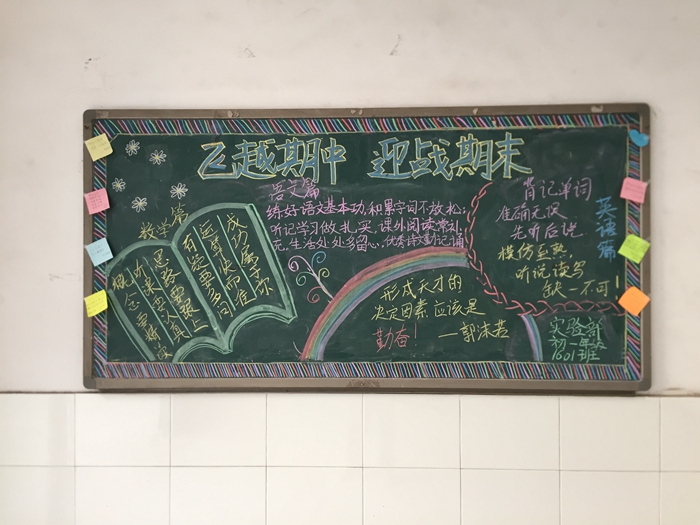 飞越期中 迎战期末
数学篇
概念要精设
听课要认真
思路要跟上
有疑要多问
运算快而准
成功属于你
语文篇
练好语文基本功,积累字词不放松;
听记学习做扎实,课外阅读常补
充,生活处处多留心,优秀诗文勤记诵
形成天才的
决定因素应该是
勤奋!——郭沫若
英语篇
背记单词
准确无误
先听后说
模仿至熟,
听说读写
缺一不可!
实验部
初一年级
1601班